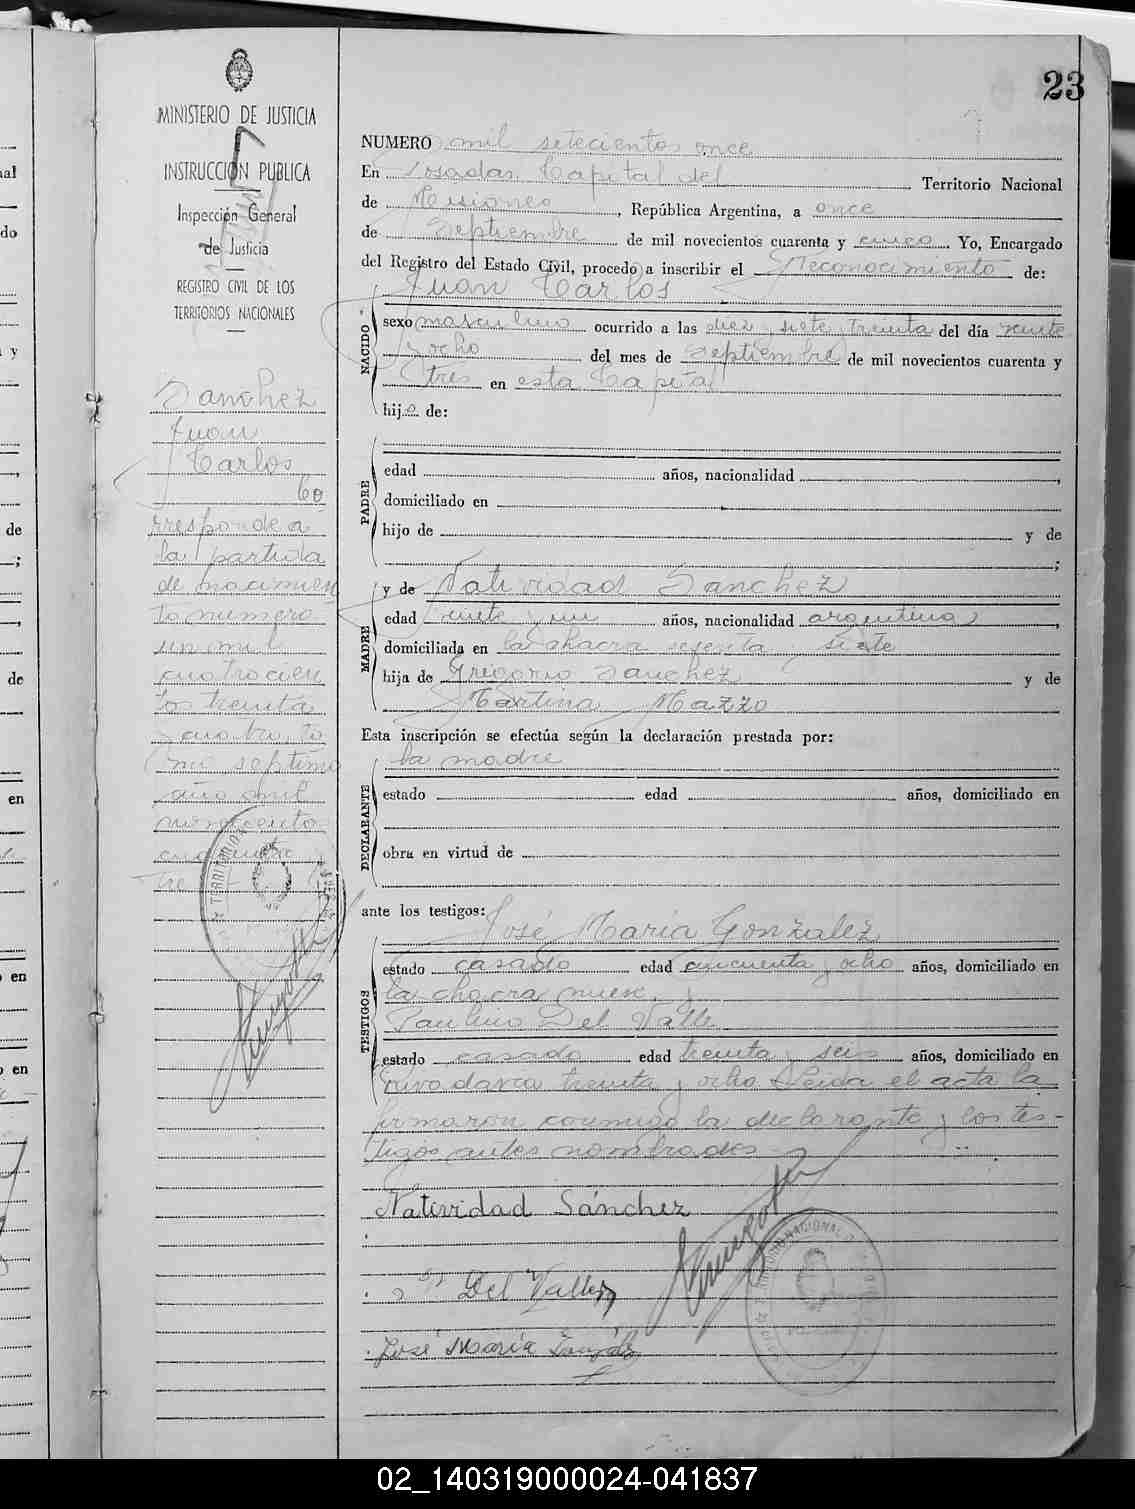 23
MINISTERIO DE JUSTICIA
E
INSTRUCCIÓN PUBLICA
Inspección General
de Justicia
REGISTRO CIVIL DE LOS
TERRITORIOS NACIONALES
Sanchez
Juan
Carlos
Co
rresponde a
la partida
de nacimien
to numero
un mil
cuatrocien
tos treinta
y cuatro to
mo septimo
año mil
novecientos
cuarenta
y tres
NUMERO mil setecientos once
En Posadas Capital del Territorio Nacional
de Misiones, República Argentina, a once
de Septiembre de mil novecientos cuarenta y cinco. Yo, Encargado
del Registro del Estado Civil, procedo a inscribir el Reconocimiento de:
Juan Carlos
NACIDO
sexo masculino ocurrido a las diez y siete y treinta del día veinte
y ocho del mes de Septiembre de mil novecientos cuarenta y
tres en esta Capital
hijo de:
PADRE
edad años, nacionalidad
domiciliado en
hijo de y de
MADRE
y de Natividad Sanchez
edad veinte y un años, nacionalidad argentina,
domiciliada en la chacra sesenta y siete
hija de Gregorio Sanchez y de
Martina Mazzo
Esta inscripción se efectúa según la declaración prestada por:
la madre
DECLARANTE
estado edad años, domiciliado en
obra en virtud de
ante los testigos:
José María Gonzalez
TESTIGOS
estado casado edad cincuenta y ocho años, domiciliado en
la chacra nueve y
Paulino Del Valle
estado casado edad treinta y seis años, domiciliado en
Rivadavia treinta y ocho Leida el acta la
firmaron conmigo la declarante y los tes-
tigos antes nombrados
Natividad Sánchez
Del Valle
José María González
02_140319000024-041837